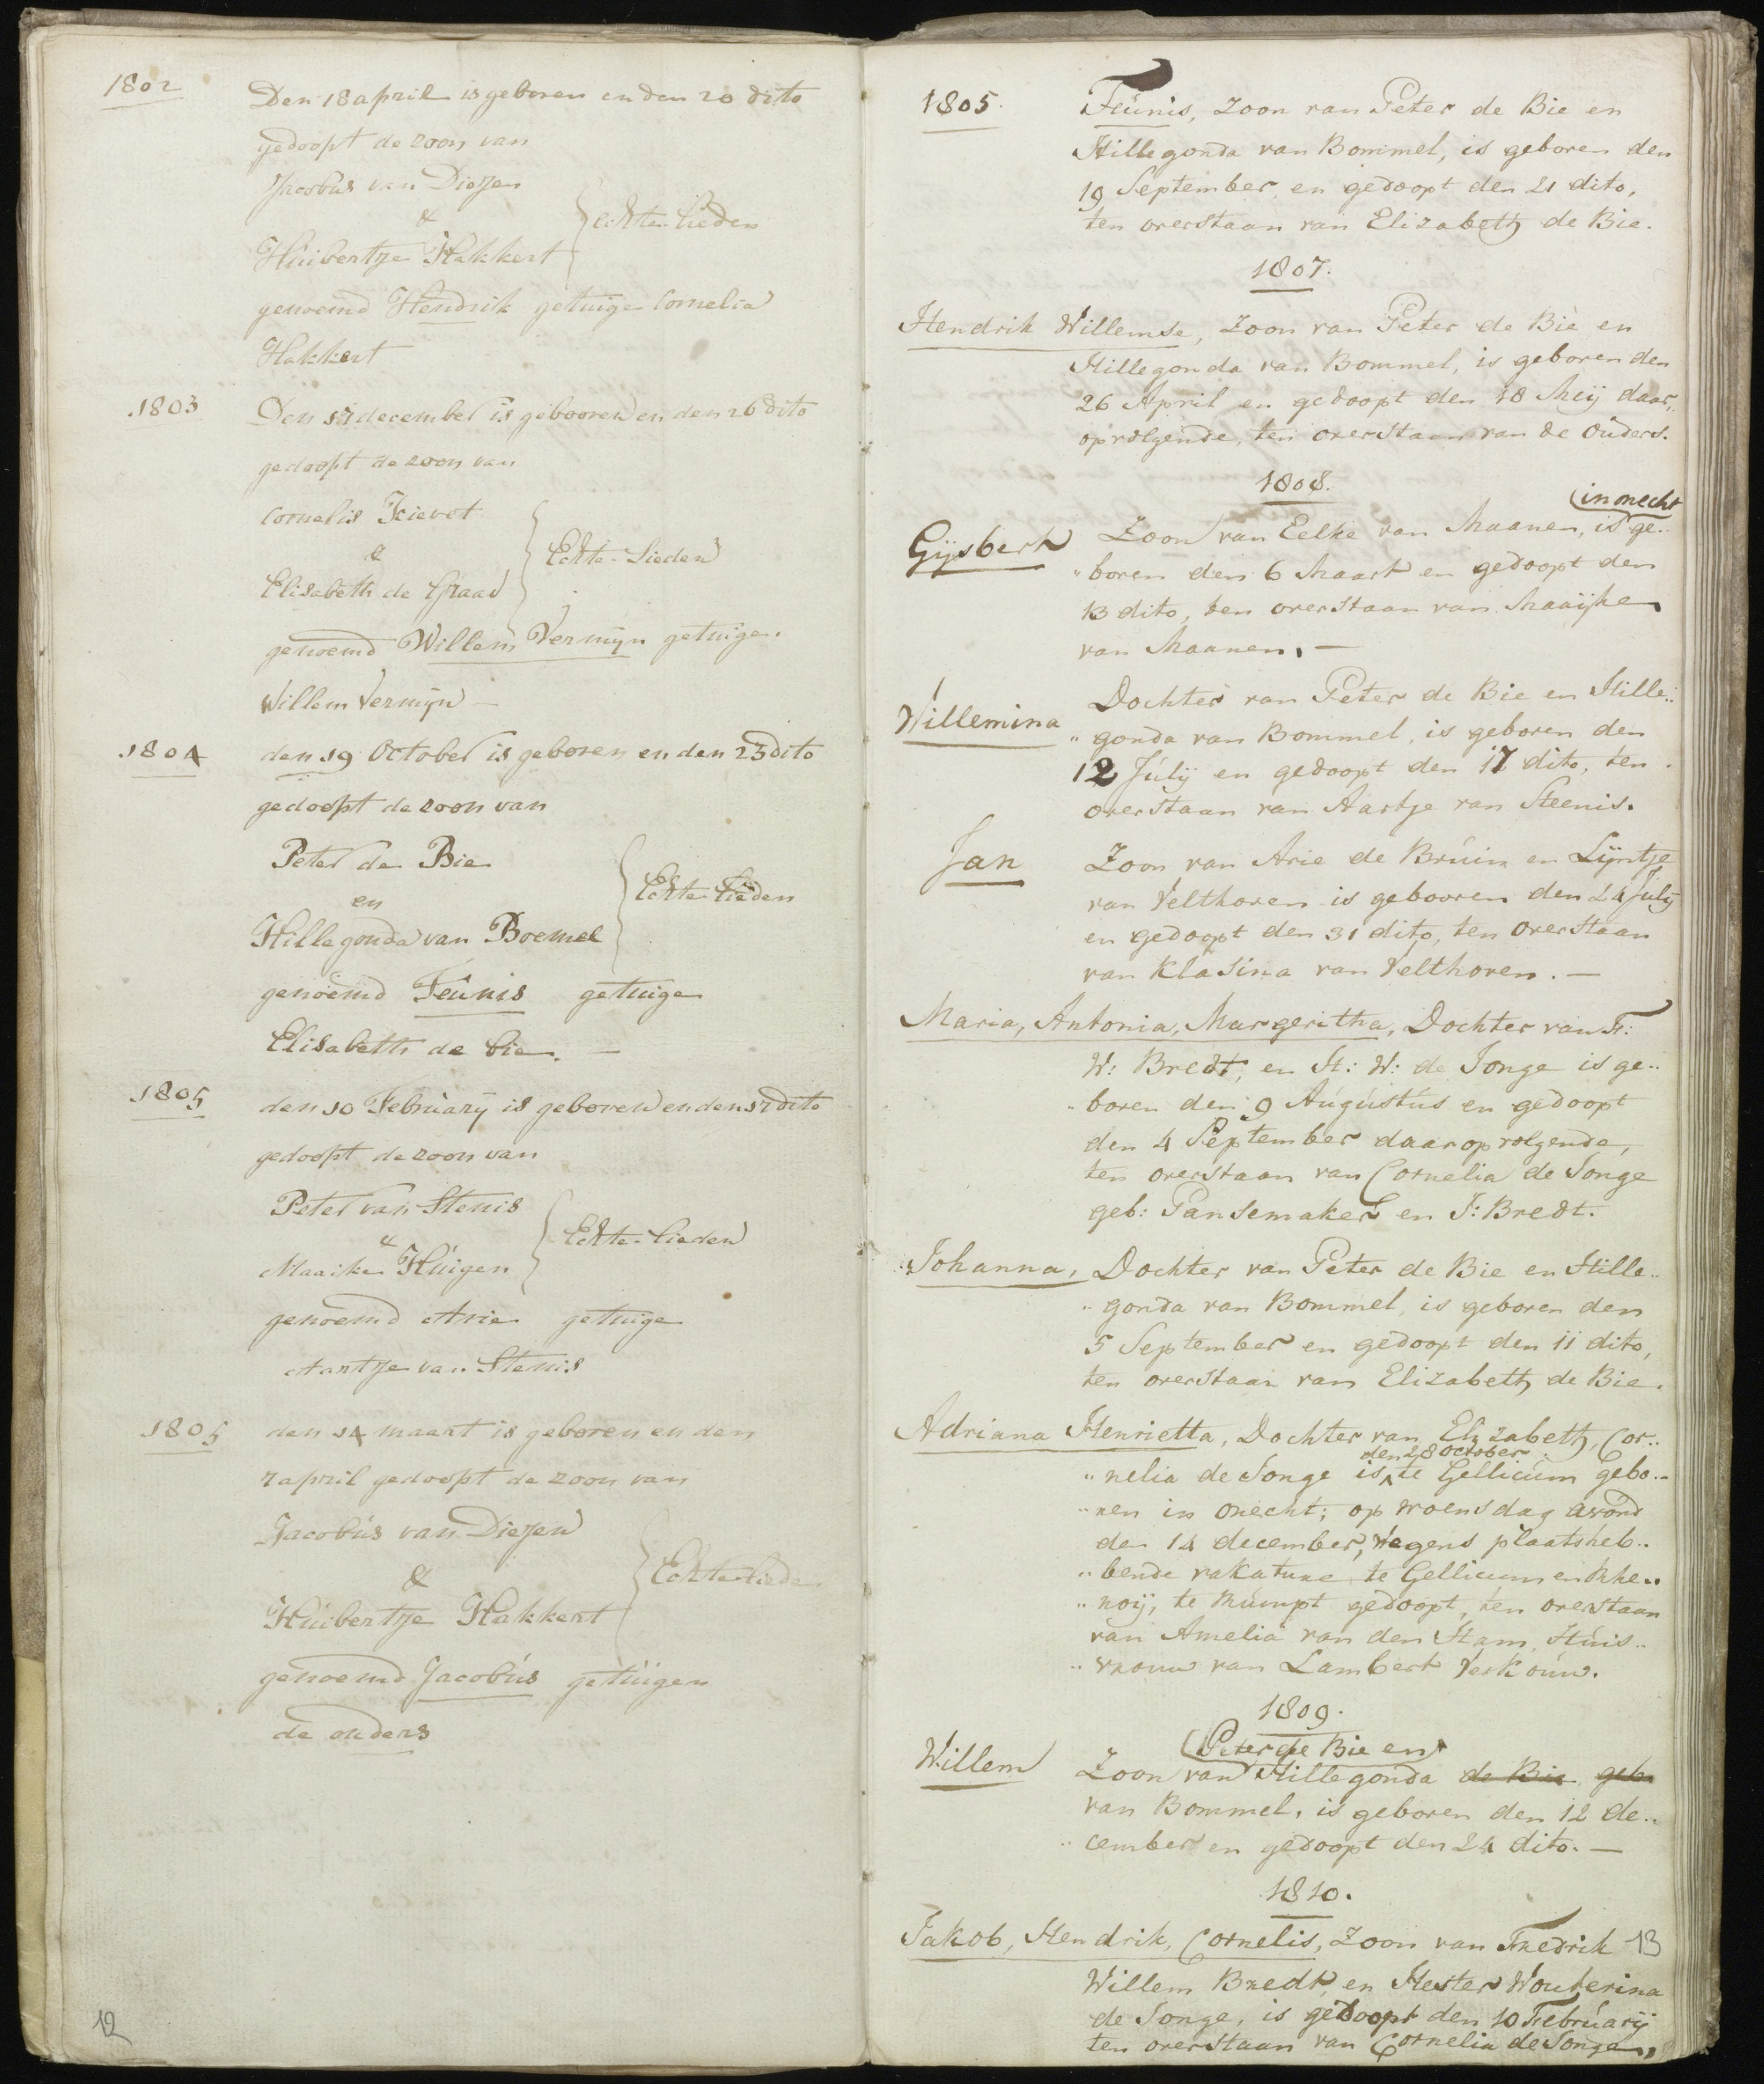 1802
Den 18 april is geboren en den 20 dito
gedoopt de zoon van
Jacobus van Diezen
&
Huibertje Hakkert
echte lieden
genoemd Hendrik getuige Cornelia
Hakkert
1803
Den 17 december is gebooren en den 26 dito
gedoopt de zoon van
Cornelis Kievet
&
Elisabeth de Graad
Echte-Lieden
genoemd Willem Vermijn getuige
Willem Vermijn —
1804
den 19 October is geboren en den 23 dito
gedoopt de zoon van
Peter de Bie
en
Hillegonda van Boemel
Echte Lieden
genoemd Teunis getuige
Elisabeth de bie. —
1805
den 10 February is geboren en den 17 dito
gedoopt de zoon van
Peter van Stenis
&
Maaike Huigen
Echte-lieden
genoemd Arie getuige
Aartje van Stenis
1805
den 14 maart is geboren en den
7 april gedoopt de zoon van
Jacobus van Diezen
&
Huibertje Hakkert
Echte-liede
genoemd Jacobus getuigen
de ouders
12
1805.
Teunis, Zoon van Peter de Bie en
Hillegonda van Bommel, is geboren den
19 September en gedoopt den 21 dito,
ten overstaan van Elizabeth de Bie.
1807.
Hendrik Willemse, Zoon van Peter de Bie en
Hillegonda van Bommel, is geboren den
26 April en gedoopt den 18 Meij daar,,
opvolgende, ten overstaan van de Ouders.
1808.
(in onecht
Gijsbert Zoon van Eelke van Maanen, is ge..
„boren den 6 Maart en gedoopt den
13 dito, ten overstaan van Maaijke
van Maanen. —
Willemina Dochter van Peter de Bie en Hille..
„gonda van Bommel, is geboren den
12 Julij en gedoopt den 17 dito, ten
overstaan van Aartje van Steenis.
Jan Zoon van Arie de Bruin en Lijntje
van Velthoven is gebooren den 24 Julij
en gedoopt den 31 dito, ten overstaan
van Klasina van Velthoven. —
Maria, Antonia, Margeritha, Dochter van F:
W: Bredt, en H: W: de Jonge is ge..
„boren den 9 Augustus en gedoopt
den 4 September daaropvolgende,
ten overstaan van Cornelia de Jonge
geb: Pansemaker en J: Bredt.
Johanna, Dochter van Peter de Bie en Hille..
„gonda van Bommel, is geboren den
5 September en gedoopt den 11 dito,
ten overstaan van Elizabeth de Bie.
Adriana Henrietta, Dochter van Elizabeth, Cor..
den 28 october
„nelia de Jonge is te Gellicum gebo..
„ren in onecht; op woensdag avond
den 14 december, wegens plaatsheb..
„bende vakature te Gellicum en Rhe..
„noij, te Rumpt gedoopt, ten overstaan
van Amelia van den Ham, Huis..
„vrouw van Lambert Verkouw.
1809.
(Peter de Bie en
Willem Zoon van Hillegonda de Bie geb.
van Bommel, is geboren den 12 de..
„cember en gedoopt den 24 dito. —
1810.
Jakob, Hendrik, Cornelis, Zoon van Fredrik 13
Willem Bredt, en Hester Wouterina
de Jonge, is gedoopt den 10 Februarij
ten overstaan van Cornelia de Jonge,